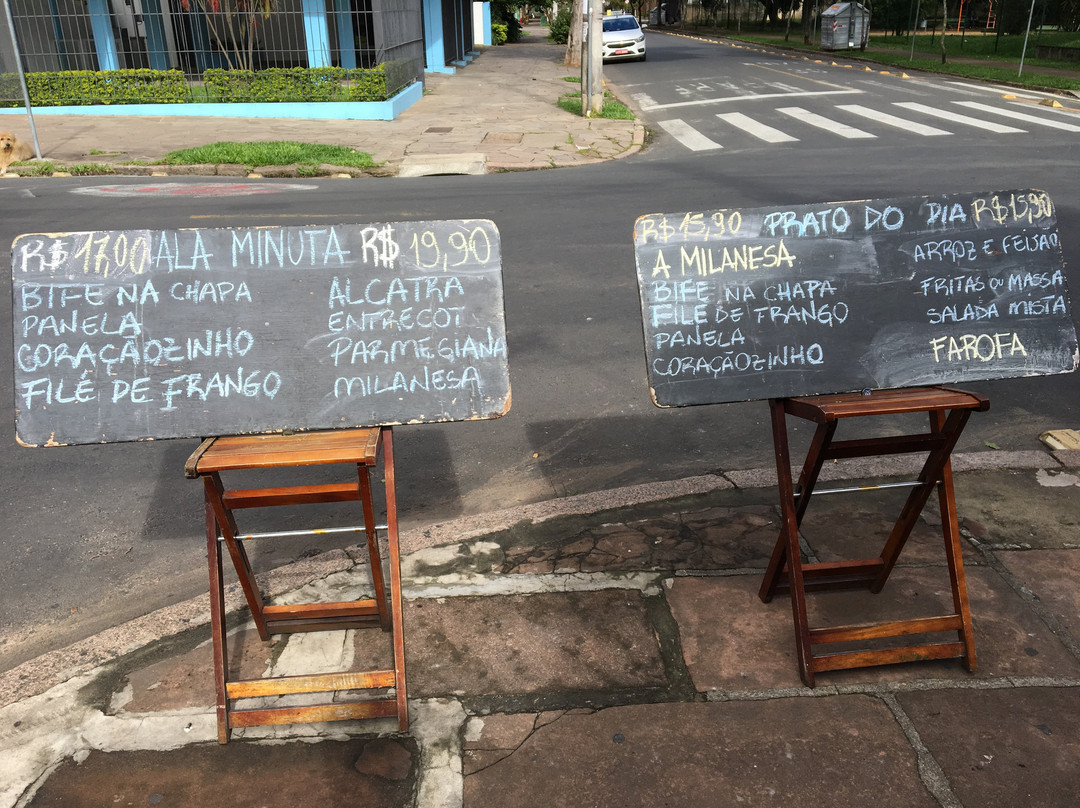 R$ 17,00 ALA MINUTA R$ 19,90
BIFE NA CHAPA
PANELA
CORAÇÃOZINHO
FILÉ DE FRANGO
ALCATRA
ENTRECOT
PARMEGIANA
MILANESA
R$ 15,90 PRATO DO DIA R$ 15,90
A MILANESA
BIFE NA CHAPA
FILE DE FRANGO
PANELA
CORAÇÃOZINHO
ARROZ E FEIJÃO
FRITAS OU MASSA
SALADA MISTA
FAROFA